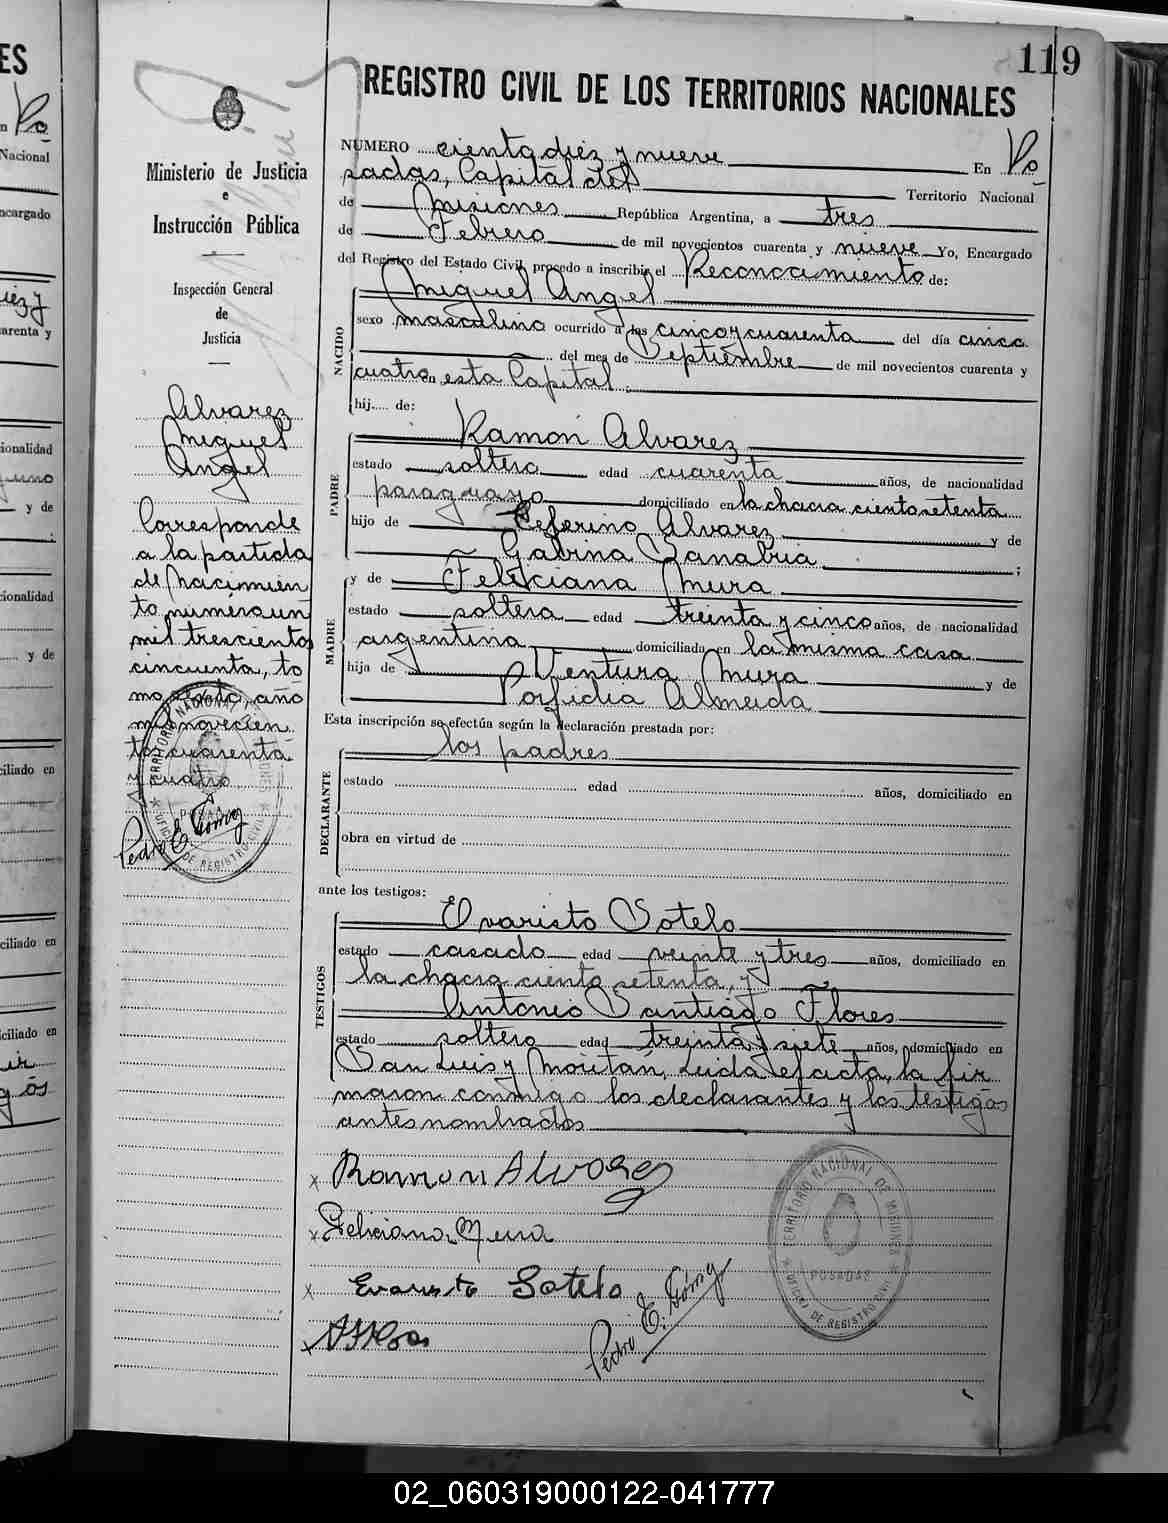 119
REGISTRO CIVIL DE LOS TERRITORIOS NACIONALES
Ministerio de Justicia
e
Instrucción Pública
Inspección General
de
Justicia
Alvarez
Miguel
Angel
Corresponde
a la partida
de Nacimien
to número un
mil trescientos
cincuenta, to
mo sexto año
mil novecien
tos cuarenta
y cuatro
Pedro E. Gómez
NUMERO ciento diez y nueve En Po
sadas, Capital del Territorio Nacional
de Misiones República Argentina, a tres
de Febrero de mil novecientos cuarenta y nueve Yo, Encargado
del Registro del Estado Civil, procedo a inscribir el Reconocimiento de:
Miguel Angel
NACIDO
sexo masculino ocurrido a las cinco y cuarenta del día cinco
del mes de Septiembre de mil novecientos cuarenta y
cuatro en esta Capital.
hij.... de:
PADRE
Ramón Alvarez
estado soltero edad cuarenta años, de nacionalidad
paraguayo domiciliado en la chacra ciento setenta
hijo de Ceferino Alvarez y de
Gabina Sanabria ;
MADRE
y de Feliciana Mura
estado soltera edad treinta y cinco años, de nacionalidad
argentina domiciliada en la misma casa
hija de Ventura Mura y de
Porfidia Almeida
Esta inscripción se efectúa según la declaración prestada por:
DECLARANTE
los padres
estado edad años, domiciliado en
obra en virtud de
ante los testigos:
TESTIGOS
Evaristo Sotelo
estado casado edad veinte y tres años, domiciliado en
la chacra ciento setenta, y
Antonio Santiago Flores
estado soltero edad treinta y siete años, domiciliado en
San Luis y Moritán, Leida el acta, la fir
maron conmigo los declarantes y los testigos
antes nombrados
x Ramon Alvarez
x Feliciana Mura
x Evaristo Sotelo
Pedro E. Gómez
TERRITORIO NACIONAL DE MISIONES
POSADAS
OFICINA DE REGISTRO CIVIL
02_060319000122-041777